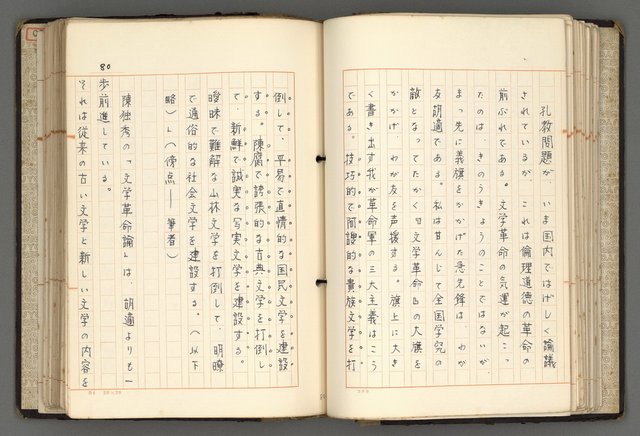 孔教問題が、いま国内ではげしく論議
されているが、これは倫理道徳の革命の
前ぶれである。文学革命の気運が起こっ
たのは、きのうきょうのことではないが
まっ先に義旗をかかげた急先鋒は、わが
友胡適である。私は甘んじて全国学究の
敵となってたかく『文学革命』の大旗を
かかげ、わが友を声援する。旗上に大き
く書き出す我が革命軍の三大主義はこう
である。技巧的で阿諛的な貴族文学を打
倒して、平易で直情的な国民文学を建設
する。陳腐で誇張的な古典文学を打倒し
て、新鮮で誠実な写実文学を建設する。
曖昧で難解な山林文学を打倒して、明瞭
で通俗的な社会文学を建設する。(以下
略)」(傍点——筆者)
陳独秀の「文学革命論」は、胡適よりも一
歩前進している。
それは従来の古い文学と新しい文学の内容を
80